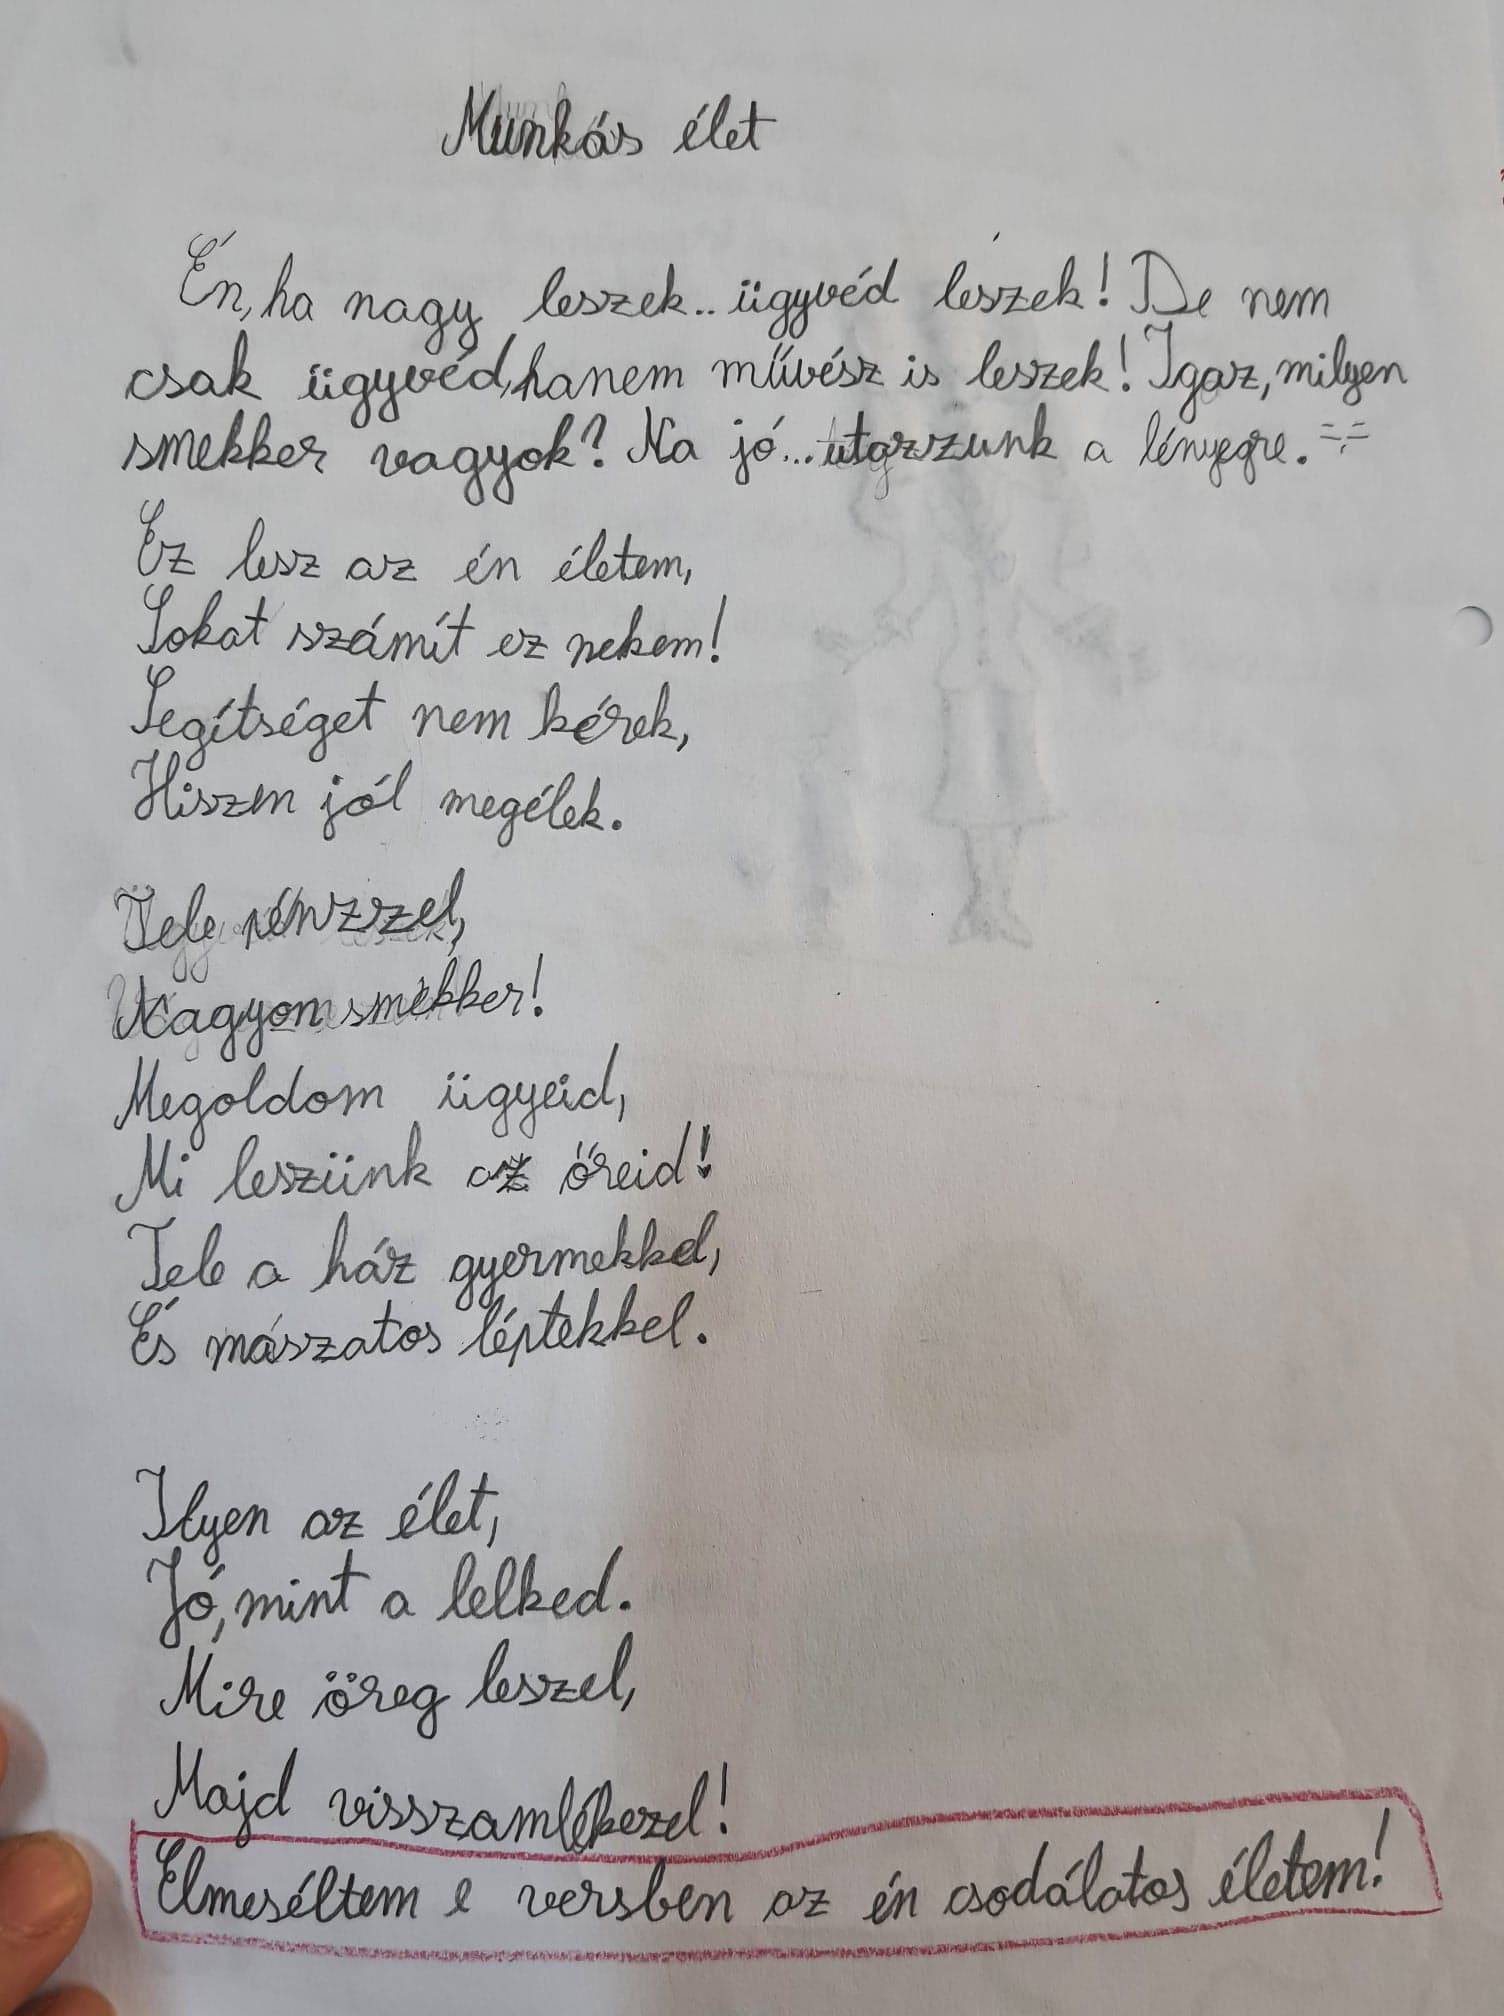 Munkás élet
Én, ha nagy leszek.. ügyvéd leszek! De nem
csak ügyvéd, hanem művész is leszek! Igaz, milyen
smekker vagyok? Na jó... utazzunk a lényegre.
Ez lesz az én életem,
Sokat számít ez nekem!
Segítséget nem kérek,
Hiszen jól megélek.
Tele pénzzel,
Nagyon smekker!
Megoldom ügyeid,
Mi leszünk az őreid!
Tele a ház gyermekkel,
És mászatos léptekkel.
Ilyen az élet,
Jó, mint a lelked.
Mire öreg leszel,
Majd visszamlékezel!
Elmeséltem e versben az én csodálatos életem!